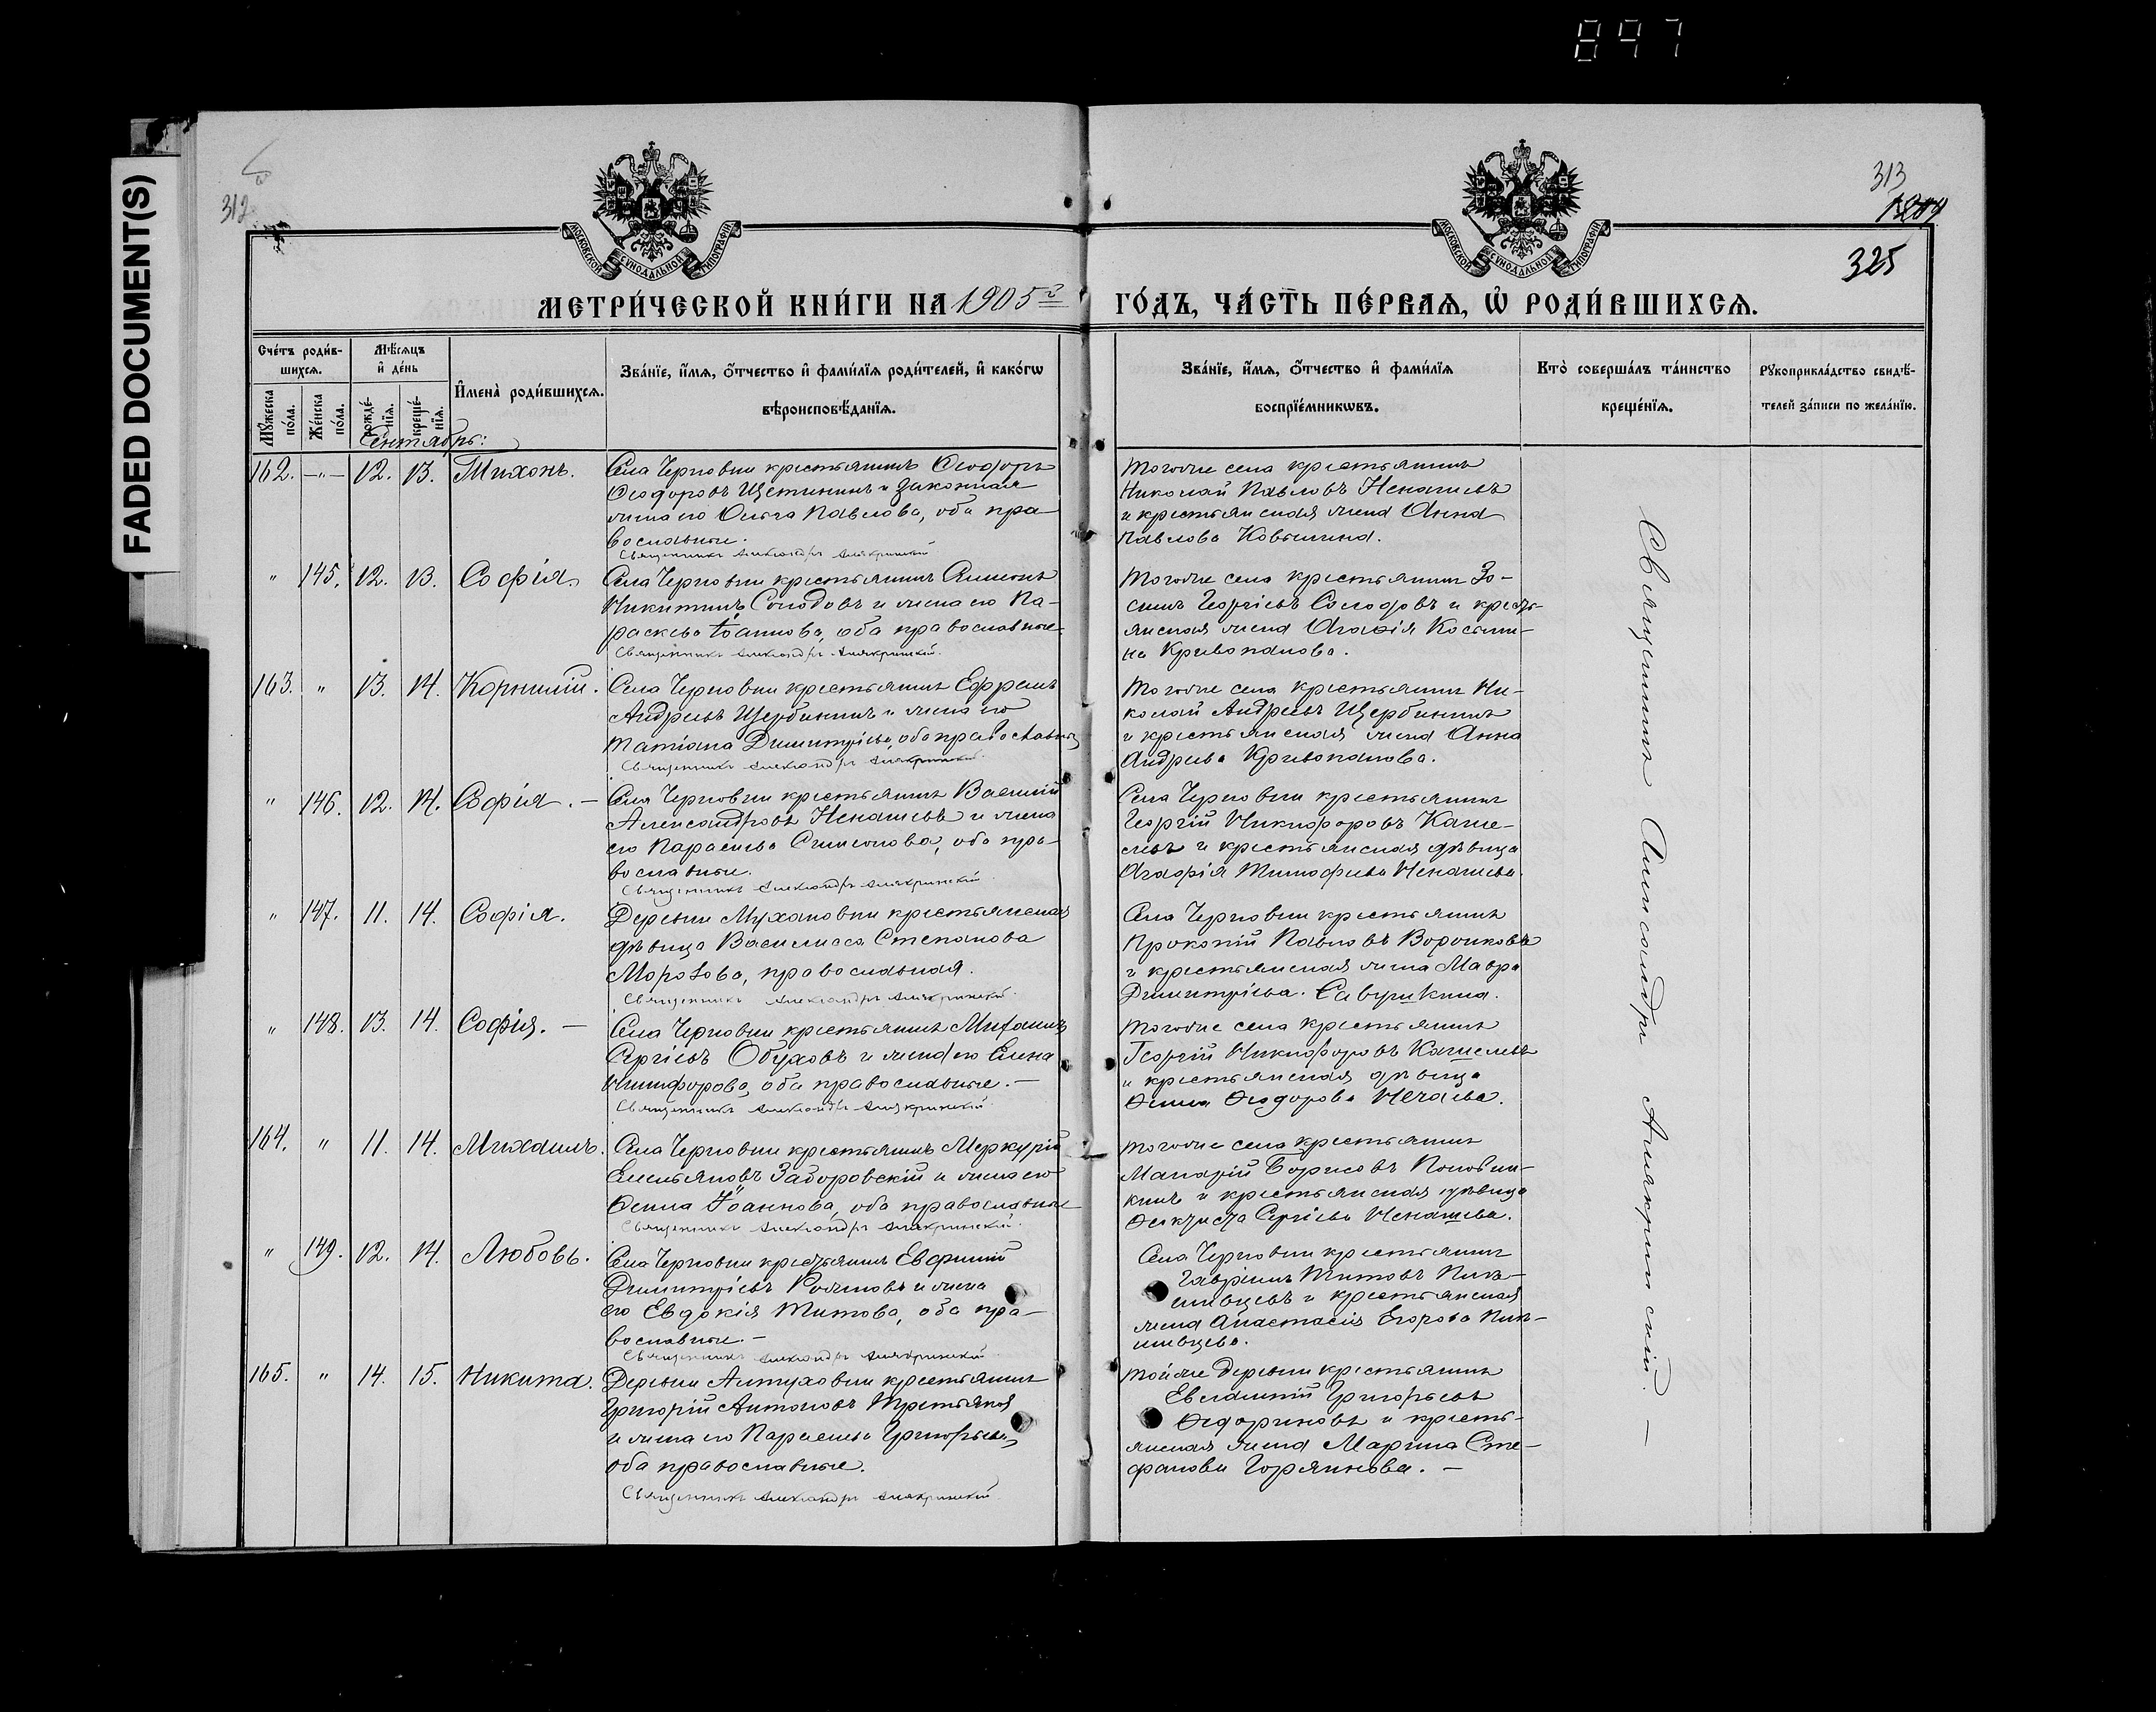 897
FADED DOCUMENT(S)
312
313
325
МОСКОВСКОЙ СѴНОДАЛЬНОЙ ТИПОГРАФІИ
МОСКОВСКОЙ СѴНОДАЛЬНОЙ ТИПОГРАФІИ
МЕТРИ́ЧЕСКОЙ КНИ́ГИ НА 1905 г
ГО́ДЪ, ЧА́СТЬ ПЕ́РВАѦ, Ѡ҆ РОДИ́ВШИХСѦ.
Сче́тъ роди́в-
шихсѧ.
Мѣ́сѧцъ
и҆ де́нь
Мꙋ́жеска по́ла.
Же́нска по́ла.
рожде́-нїѧ.
креще́-нїѧ.
И҆мена̀ роди́вшихсѧ.
Зва́нїе, и҆́мѧ, ѻ҆́тчество и҆ фами́лїѧ роди́телей, и҆ како́гѡ
вѣроисповѣ́данїѧ.
Зва́нїе, и҆́мѧ, ѻ҆́тчество и҆ фами́лїѧ
воспрїе́мникѡвъ.
Кто̀ соверша́лъ та́инство
креще́нїѧ.
Рꙋкоприкла́дство свидѣ́-
телей за́писи по жела́нїю.
Сентябрь:
162. —"— 12. 13. Тихонъ.
Села Черновки крестьянинъ Ѳеодоръ
Ѳеодоровъ Щетининъ и законная
жена его Ольга Павлова, оба пра-
вославные.
Священникъ Александръ Алякринскій
Тогоже села крестьянинъ
Николай Павловъ Ненашевъ
и крестьянская жена Анна
Павлова Ковылина.
" 145. 12. 13. Софія.
Села Черновки крестьянинъ Симеонъ
Никитинъ Солодовъ и жена его Па-
раскева Іоаннова, оба православные.
Священникъ Александръ Алякринскій.
Тогоже села крестьянинъ Зо-
симъ Георгіевъ Солодовъ и кресть-
янская жена Агаѳія Косьми-
на Кривопалова.
163. " 13. 14. Корнилій.
Села Черновки крестьянинъ Ефремъ
Андреевъ Щербининъ и жена его
Татіана Димитріева, оба православные
Священникъ Александръ Алякринскій.
Тогоже села крестьянинъ Ни-
колай Андреевъ Щербининъ
и крестьянская жена Анна
Андреева Кривопалова.
" 146. 12. 14. Софія. —
Села Черновки крестьянинъ Василій
Александровъ Ненашевъ и жена
его Параскева Симеонова, оба пра-
вославные.
Священникъ Александръ Алякринскій
Села Черновки крестьянинъ
Георгій Никифоровъ Каше-
левъ и крестьянская дѣвица
Агафія Тимофеева Ненашева.
" 147. 11. 14. Софія.
Деревни Мухановки крестьянская
дѣвица Василисса Степанова
Морозова, православная.
Священникъ Александръ Алякринскій.
Села Черновки крестьянинъ
Прокопій Павловъ Ворочковъ
и крестьянская жена Мавра
Димитріева Савушкина.
" 148. 13. 14. Софія. —
Села Черновки крестьянинъ Михаилъ
Сергіевъ Обуховъ и жена его Елена
Никифорова, оба православные. —
Священникъ Александръ Алякринскій
Тогоже села крестьянинъ
Георгій Никифоровъ Кашелевъ
и крестьянская дѣвица
Ѳекла Ѳеодорова Нечаева.
164. " 11. 14. Михаилъ.
Села Черновки крестьянинъ Меркурій
Емельяновъ Задоровскій и жена его
Ѳекла Іоаннова, оба православные
Священникъ Александръ Алякринскій.
Тогоже села крестьянинъ
Макарій Борисовъ Половин-
кинъ и крестьянская дѣвица
Ѳеоктиста Сергіева Ненашева.
" 149. 12. 14. Любовь.
Села Черновки крестьянинъ Евфимій
Димитріевъ Родіоновъ и жена
его Евдокія Титова, оба пра-
вославные. —
Священникъ Александръ Алякринскій
Села Черновки крестьянинъ
Гавріилъ Титовъ
и крестьянская
жена Анастасія Егорова
165. " 14. 15. Никита.
Деревни Алтуховки крестьянинъ
Григорій Антоновъ Третьяковъ
и жена его Параскева Григорьева,
оба православные.
Священникъ Александръ Алякринскій
Тойже деревни крестьянинъ
Евлампій Григорьевъ
и кресть-
янская жена Марина Сте-
фанова Горяинова. —
Священникъ Александръ Алякринскій. —